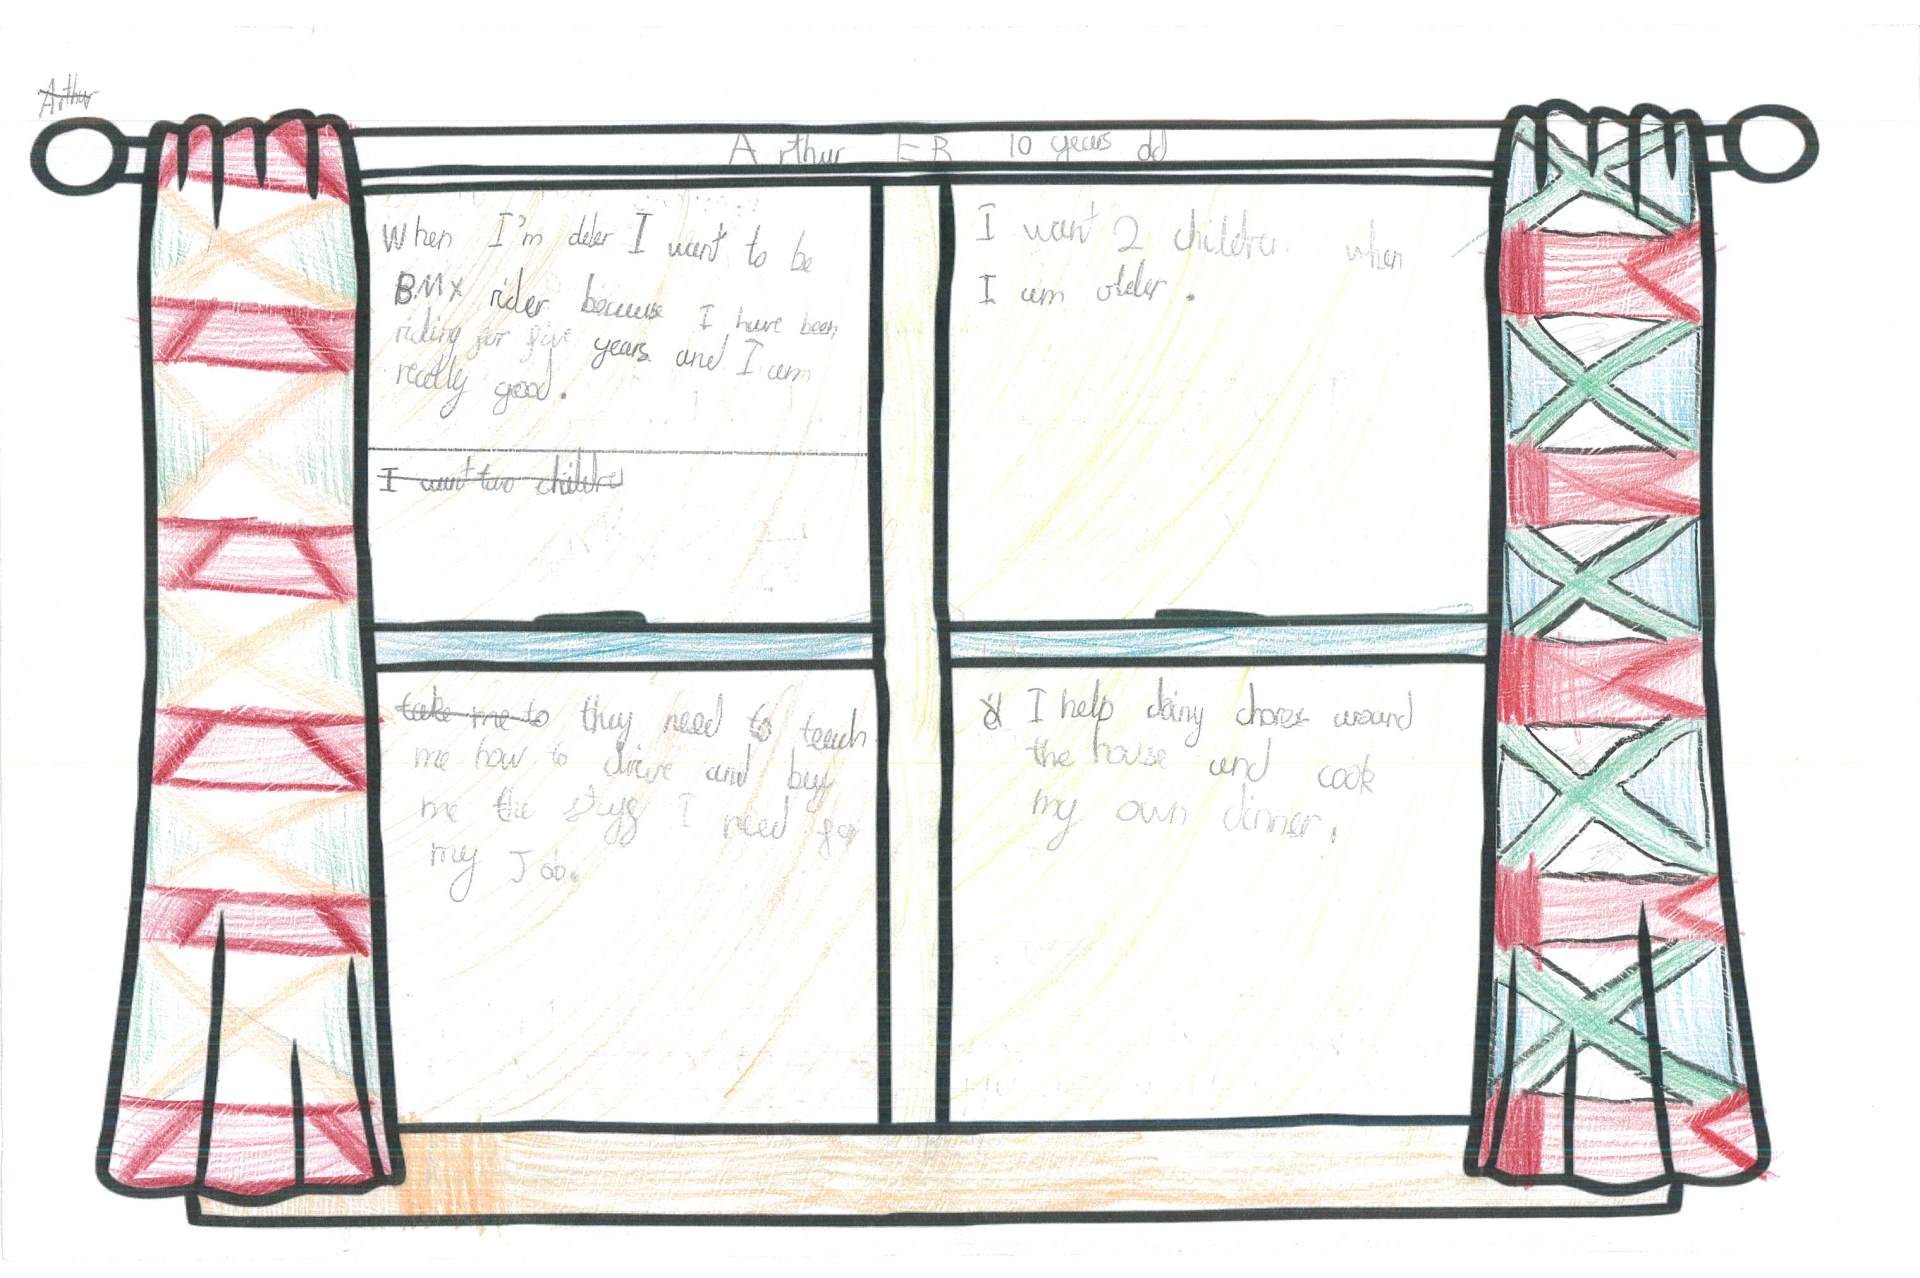 Arthur
Arthur ER 10 years old
When I'm older I want to be
BMX rider because I have been
riding for five years and I am
really good.
I want two children
I want 2 children when
I am older.
take me to they need to teach
me how to drive and buy
me the stuff I need for
my Job.
I help doing chores around
the house and cook
my own dinner.